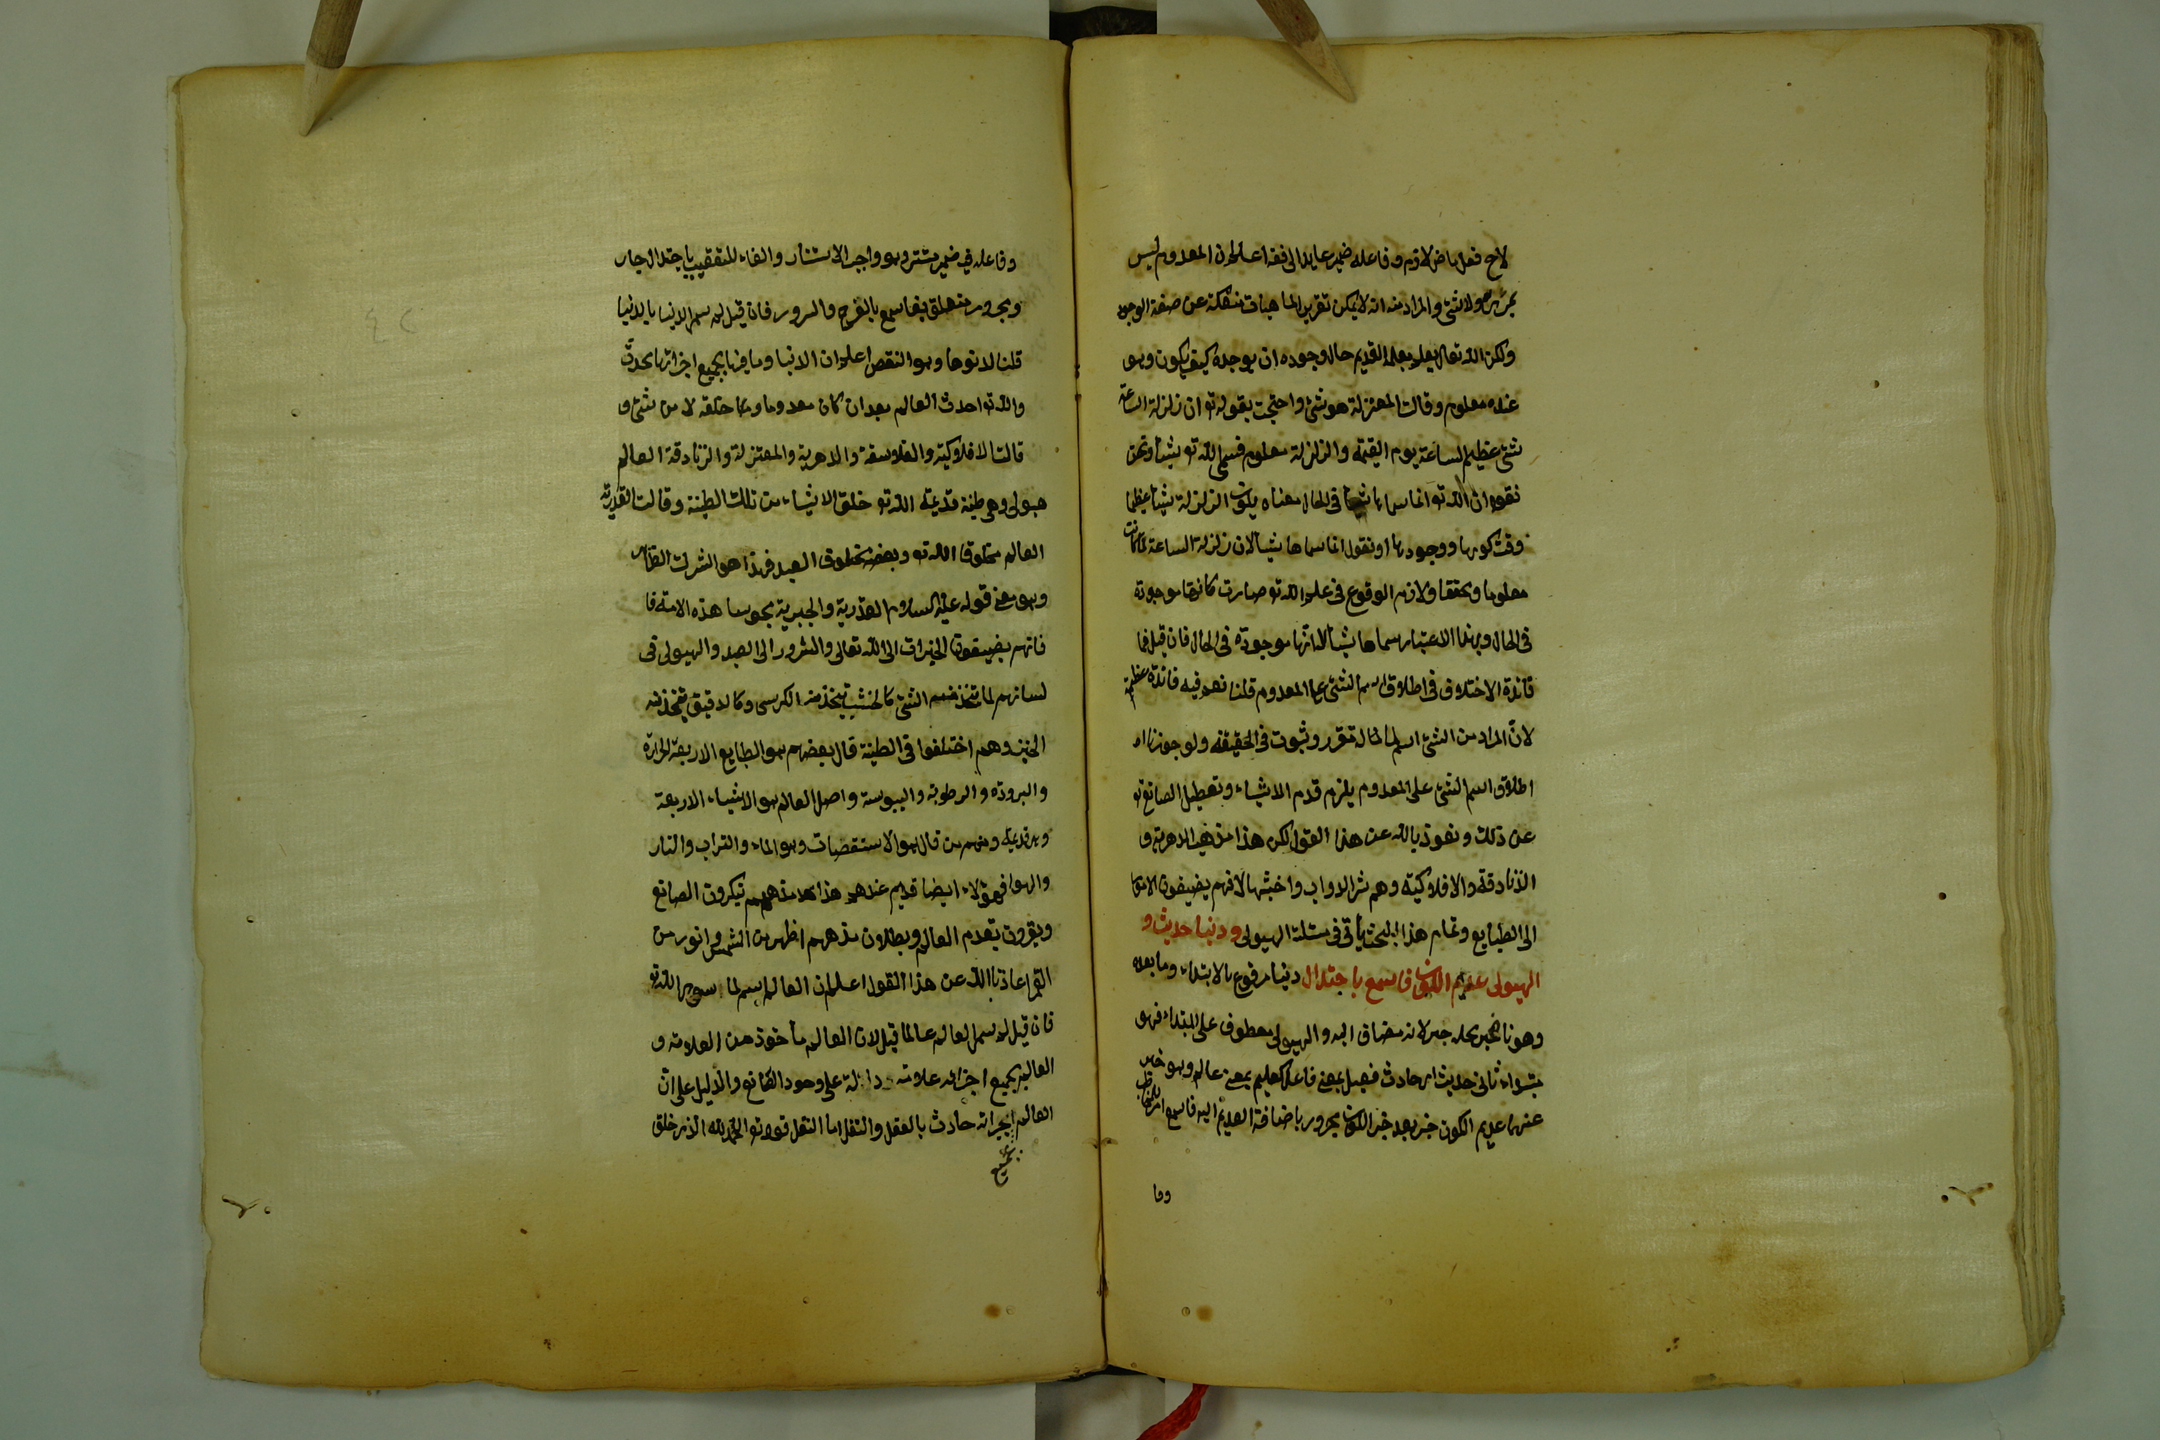 لاح فعل ماض لازم وفاعله ضمير عايد الى فقه اعلم ان المعدوم ليس
بمرئ ولا شئ والمراد منه انه لا يمكن تقرير الماهيات منفكة عن صفة الوجود
ولكن الله تعالى يعلم بعلمه القديم حال وجوده ان يوجده كيف يكون وهو
عنده معلوم وقالت المعتزلة هو شئ واحتجت بقوله تو ان زلزلة الساعة
شئ عظيم لساعة يوم القيمة والزلزلة معلوم فسمى الله تو شيئا ونحن
نقول ان الله تو انما سماها شيئا في الحال معناه يكون الزلزلة شيئا عظيما
وقت كونها ووجودها او نقول انما سماها شيئا لان زلزلة الساعة لما كانت
معلوما ومحققا ولازم الوقوع في علم الله تو صارت كانها موجودة
في الحال وبهذا الاعتبار سماها شيئا لانها موجودة في الحال فان قيل فما
فائدة الاختلاف في اطلاق اسم الشئ على المعدوم قلنا نعم فيه فائدة عظيمة
لان المراد من الشئ اسم لما له تقرر وثبوت في الحقيقة ولو جوزنا
اطلاق اسم الشئ على المعدوم يلزم قدم الاشياء وتعطيل الصانع تو
عن ذلك ونعوذ بالله عن هذا القول لكن هذا مذهب الدهرية و
الزنادقة والافلاكية وهم شر الدواب واخبثها لانهم يضيفون
الى الطبايع وتمام هذا البحث يأتي في مسئلة الهيولى ودنيا حديث و
الهيولى عديم الكون فاسمع باجتذال دنيا مرفوع بالابتداء وما بعده
وهونا مجرر محله جر لانه مضاف اليه والهيولى معطوف على المبتداء فهو
مبتداء ثانى حديث اى حادث فعيل بمعنى فاعل كعليم بمعنى عالم وهو خبر
عنهما عديم الكون خبر بعد خبر الكون مجرور باضافة العديم اليه فاسمع امر للمخاطب
وفا
وفاعله فيه ضمير مستتر وهو واجب الاستتار والفاء للتعقيب باجتذال جار
ومجرور متعلق بفاسمع بالفرح والسرور فان قيل لم سمى الدنيا بالدنيا
قلنا لدنوها وهو النقص اعلم ان الدنيا وما فيها بجميع اجزائها محدث
والله تو احدث العالم بعد ان كان معدوما وبما خلقه لا من شئ و
قالت الافلاكية والفلاسفة والدهرية والمعتزلة والزنادقة العالم
هيولى وهى طينة قديمة الله تو خلق الاشياء من تلك الطينة وقالت القدرية
العالم مخلوق الله تو وبعضه مخلوق العبد فهذا هو الشرك الظاهر
وهو معنى قوله عليه السلام القدرية والجبرية مجوسا هذه الامة فا
فانهم يضيفون الخيرات الى الله تعالى والشرور الى العبد والهيولى في
لسانهم لما يتخذ منه الشئ كالخشب يتخذ منه الكرسى وكالدقيق يتخذ منه
الخبز وهم اختلفوا في الطينة قال بعضهم هو الطبايع الاربعة الحرارة
والبرودة والرطوبة واليبوسة واصل العالم هو الاشياء الاربعة
وهى قديمة ومنهم من قال هو الاستقصات وهو الماء والتراب والنار
والهوا فهؤلاء ايضا قديم عندهم هذا مذهبهم ينكرون الصانع
ويقرون بقدم العالم وبطلان مذهبهم اظهر من الشمس وانور من
القمر اعاذنا الله عن هذا القول اعلم ان العالم اسم لما سوى الله تو
فان قيل لم سمى العالم عالما قيل لان العالم مأخوذ من العلامة و
العالم بجميع اجزائه علامة دالة على وجود الصانع والدليل على ان
العالم بجميع اجزائه حادث بالعقل والنقل اما النقل قوله تو الحمد لله الذى خلق